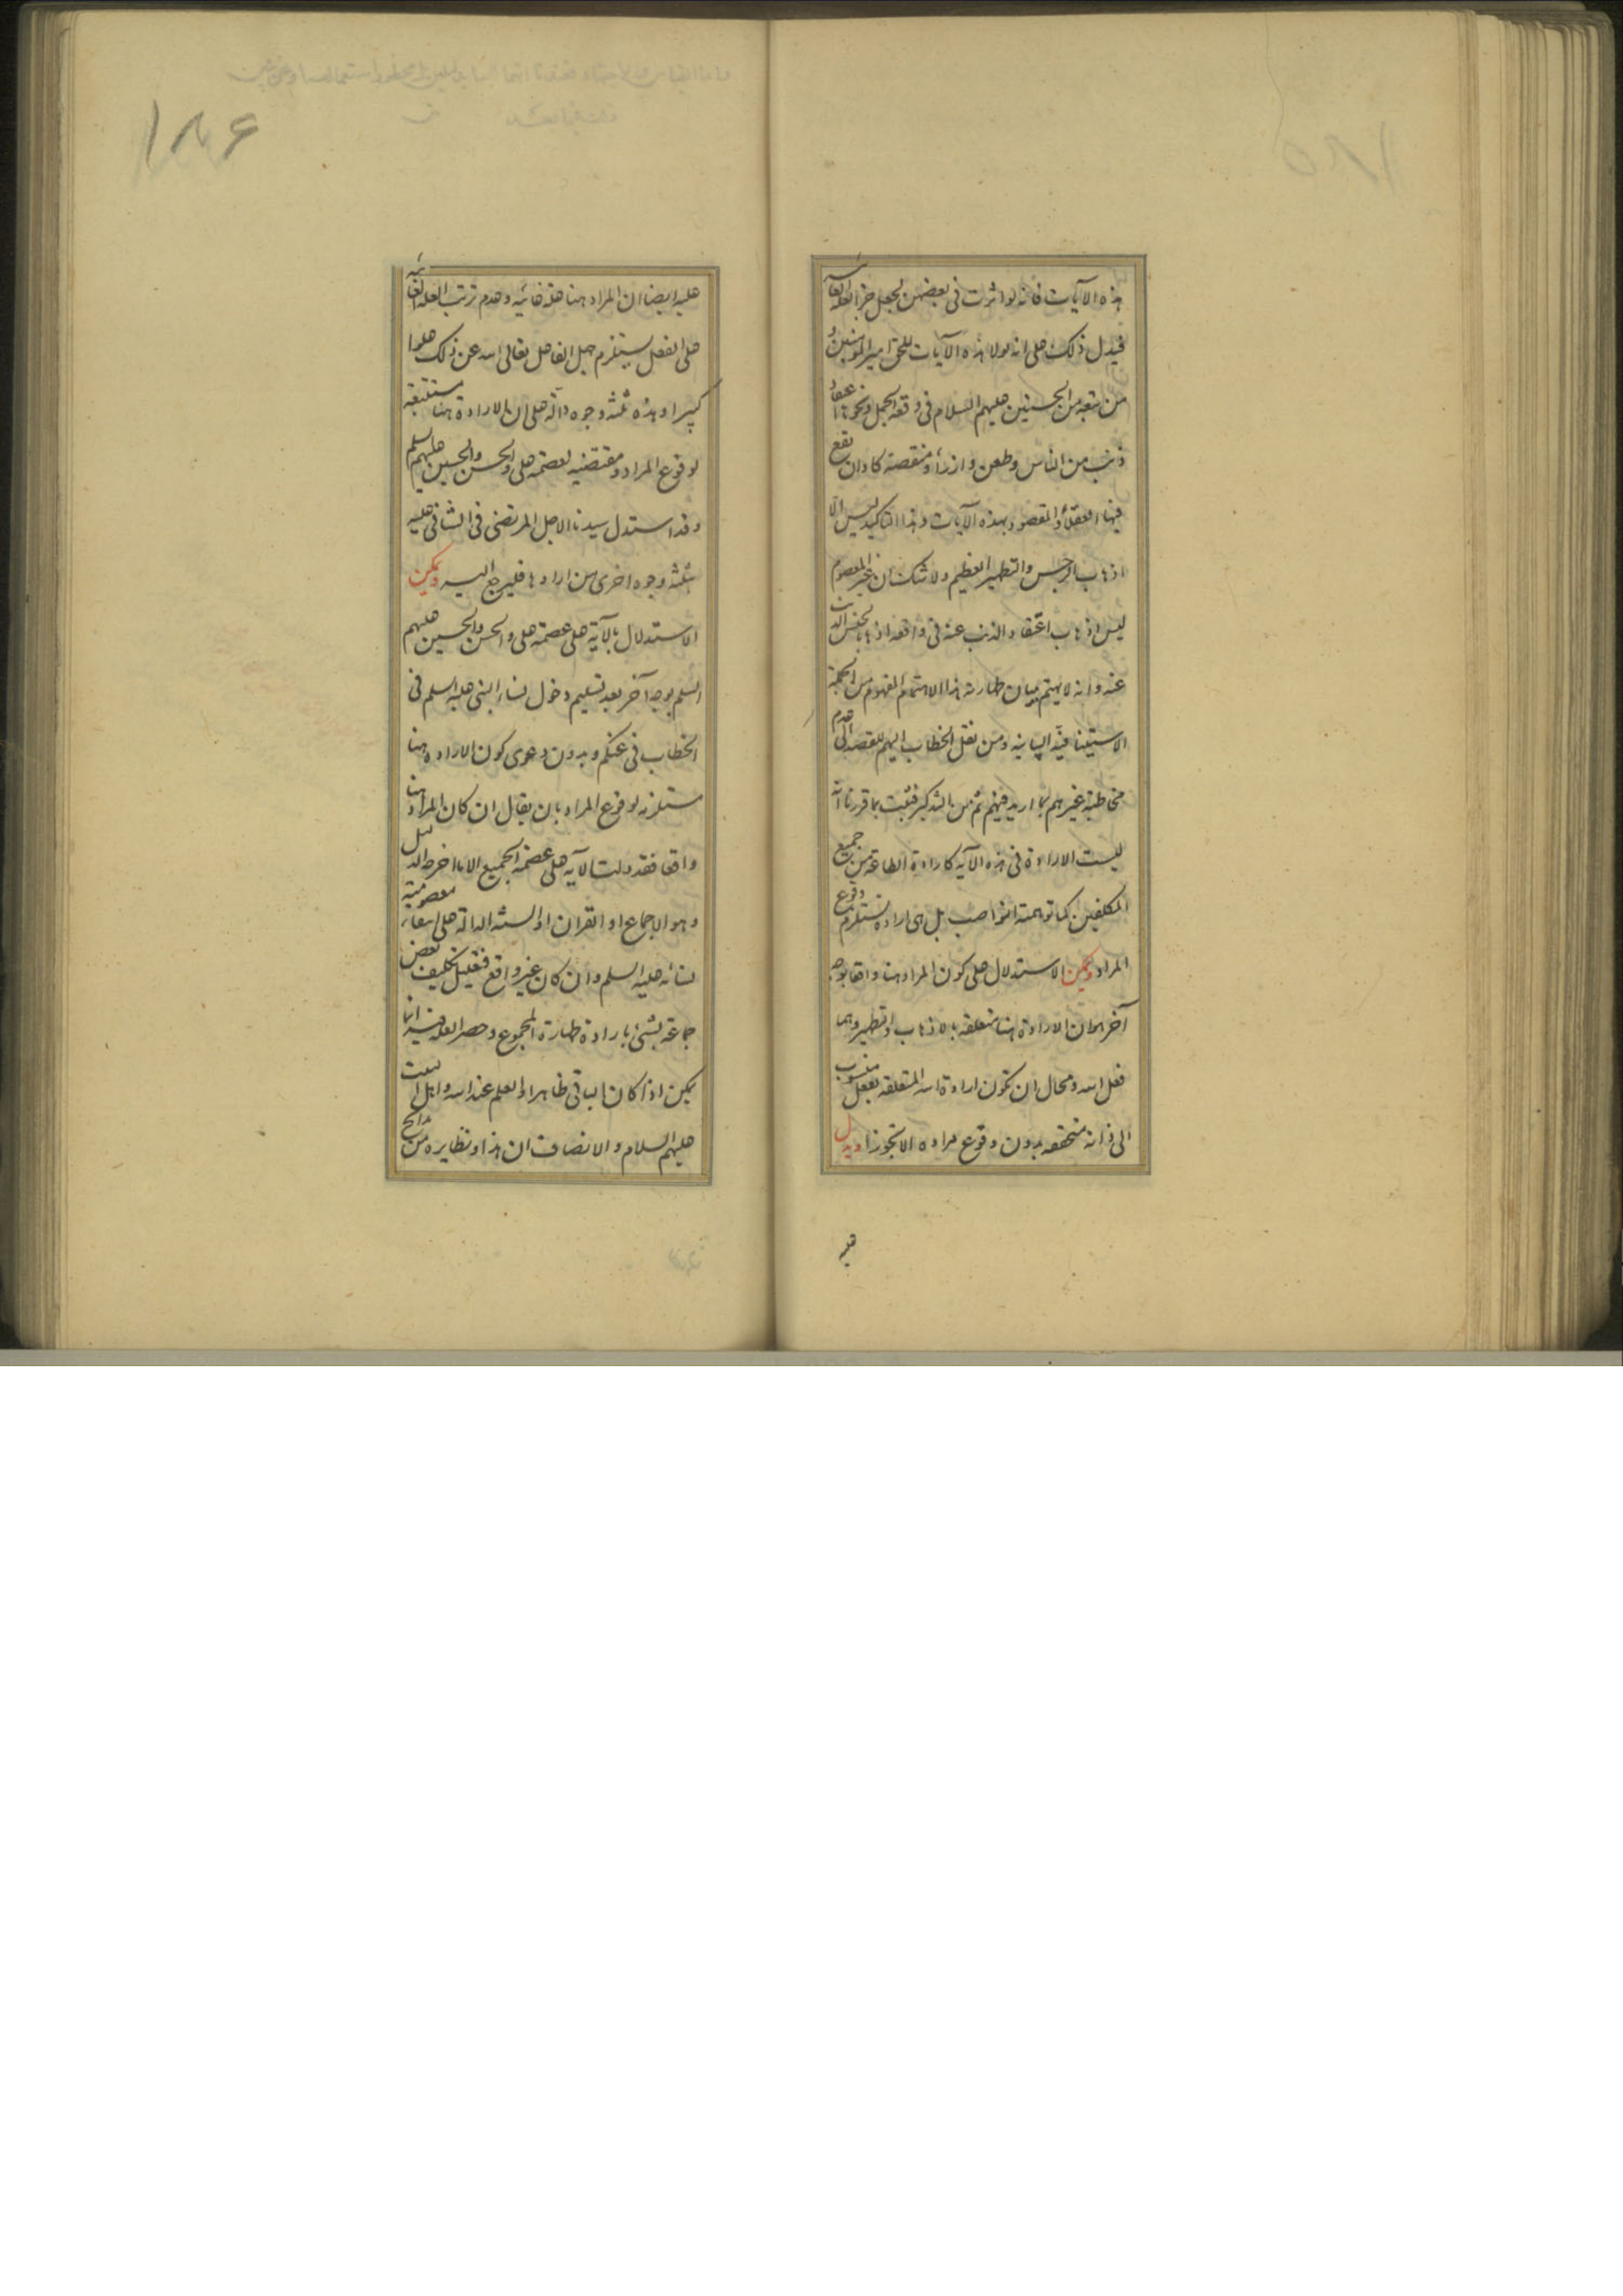 هذه الآيات فانه لو اثرت فى بعضهن لجعل جزء العلة الغائية
فيدل ذلك على انه لولا هذه الآيات للحق امير المؤمنين و
من تبعه من الحسنين عليهم السلام فى وقعة الجمل ونحوها اعتقاد
ذنب من الناس وطعن وازراء ومنقصة كاد ان يقع
فيها العقلاء والمقصود بهذه الآيات وهذا التاكيد ليس الا
اذهاب الرجس والتطهير العظيم ولا شك ان غير المعصوم
ليس اذهاب اعتقاد الذنب عنه فى واقعة اذهابا لجنس الذنب
عنه وانه لا يهتم ببيان طهارته هذا الاهتمام المفهوم من الجملة
الاستينافية البيانية ومن نقل الخطاب اليهم للقصد الى عدم
مخاطبة غيرهم بما اريد فيهم ثم من التذكير فثبت بما قررنا انه
ليست الارادة فى هذه الآية كارادة الطاعة من جميع
المكلفين كما توهمته النواصب بل هى ارادة تستلزم وقوع
المراد ويمكن الاستدلال على كون المراد هنا واقعا بوجه
آخر هو ان الارادة هنا متعلقه بالاذهاب والتطهير وهما
فعل الله ومحال ان تكون ارادة الله المتعلقه بفعل منسوب
الى ذاته متحققه بدون وقوع مراده الا تجوزا ويدل
عليه
۱۸۶
عليه ايضا ان المراد هنا علة غائيه وعدم ترتب العلة الغائية
على الفعل يستلزم جهل الفاعل تعالى الله عن ذلك علوا
كبيرا وهذه ثلثه وجوه دالة على ان الارادة هنا مستتبعة
لوقوع المراد ومقتضيه لعصمة على والحسن والحسين عليهم السلم
وقد استدل سيدنا الاجل المرتضى فى الشافى عليه
بثلثه وجوه اخرى من ارادها فليرجع اليه ويمكن
الاستدلال بالآية على عصمة على والحسن والحسين عليهم
السلم بوجه آخر بعد تسليم دخول نساء النبى عليه السلم فى
الخطاب فى عنكم وبدون دعوى كون الارادة هنا
مستلزمه لوقوع المراد بان يقال ان كان المراد هنا
واقعا فقد دلت الآيه على عصمة الجميع الا ما اخرجه الدليل
وهو الاجماع او القرآن او السنة الدالة على انتفاء معصومية
نسائه عليه السلم وان كان غير واقع فتعليل تكليف بعض
جماعة بشئ بارادة طهارة المجموع وحصر العلة فيه انما
يمكن اذا كان الباقى طاهرا والعلم عند الله واهل البيت
عليهم السلام والانصاف ان هذا ونظايره من